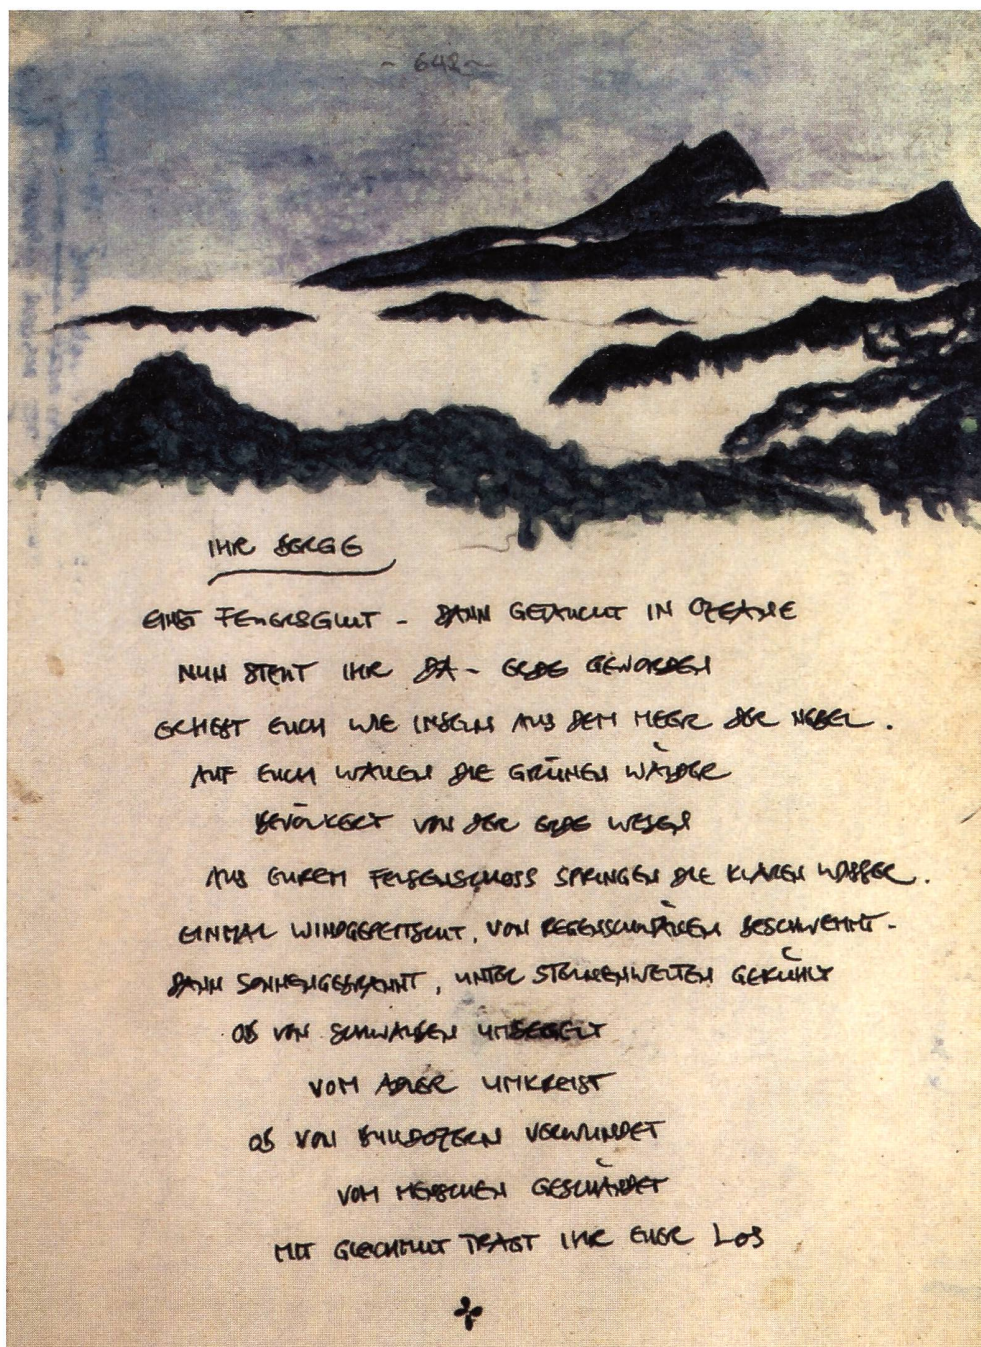 ~ 648 ~
IHR BERGE
EINST FEUERSGLUT - DANN GETAUCHT IN OZEANE
NUN STEHT IHR DA - ERDE GEWORDEN
ERHEBT EUCH WIE INSELN AUS DEM MEER DER NEBEL.
AUF EUCH WALLEN DIE GRÜNEN WÄLDER
BEVÖLKERT VON DER ERDE WESEN
AUS EUREM FELSENSCHOSS SPRINGEN DIE KLAREN WASSER.
EINMAL WINDGEPEITSCHT, VON REGENSCHWÄLLEN BESCHWEMMT -
DANN SONNENGEBRANNT, UNTER STERNENWELTEN GEKÜHLT
OB VON SCHWALBEN UMSEGELT
VOM ADLER UMKREIST
OB VON BULLDOZERN VERWUNDET
VOM MENSCHEN GESCHÄNDET
MIT GLEICHMUT TRAGT IHR EUER LOS